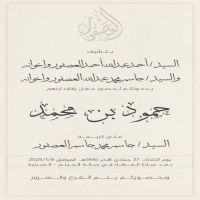 يتشرف
السيد / أحمد عبدالله أحمد العصفور وإخوانه
والسيد / جاسم محمد عبدالله العصفور وإخوانه
بدعوتكم لحضور حفل زفاف ابنهم
حمود بن محمد
على كريمة
السيد / جاسم محمد جاسم العصفور
يوم الثلاثاء 27 جمادى الآخر 1445هـ الموافق 2024/1/9
بعد صلاة العشاء في صالة
وبحضوركم يتم الفرح والسرور